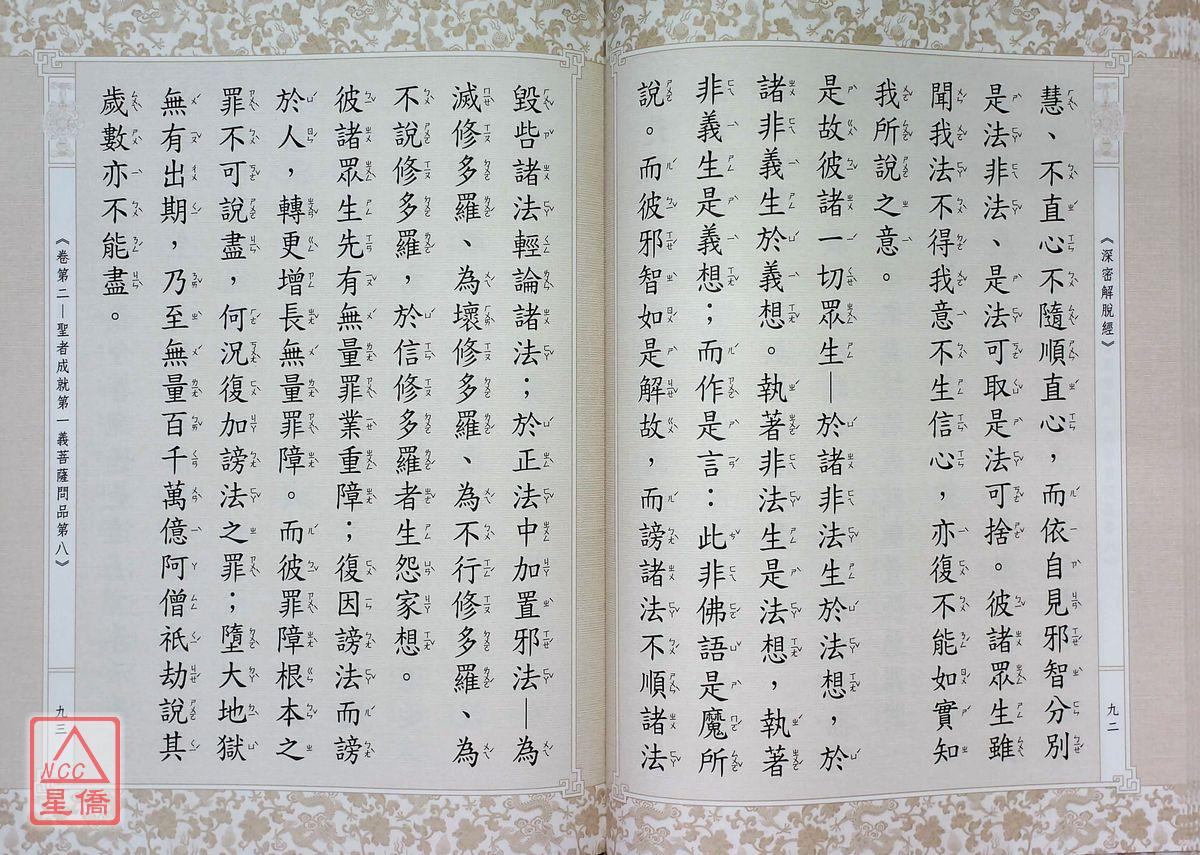 《深密解脫經》
九二
慧、不直心不隨順直心，而依自見邪智分別
是法非法、是法可取是法可捨。彼諸眾生雖
聞我法不得我意不生信心，亦復不能如實知
我所說之意。
是故彼諸一切眾生—於諸非法生於法想，於
諸非義生於義想。執著非法生是法想，執著
非義生是義想；而作是言：此非佛語是魔所
說。而彼邪智如是解故，而謗諸法不順諸法
毀呰諸法輕論諸法；於正法中加置邪法—為
滅修多羅、為壞修多羅、為不行修多羅、為
不說修多羅，於信修多羅者生怨家想。
彼諸眾生先有無量罪業重障；復因謗法而謗
於人，轉更增長無量罪障。而彼罪障根本之
罪不可說盡，何況復加謗法之罪；墮大地獄
無有出期，乃至無量百千萬億阿僧祇劫說其
歲數亦不能盡。
《卷第二—聖者成就第一義菩薩問品第八》
九三
NCC
星僑